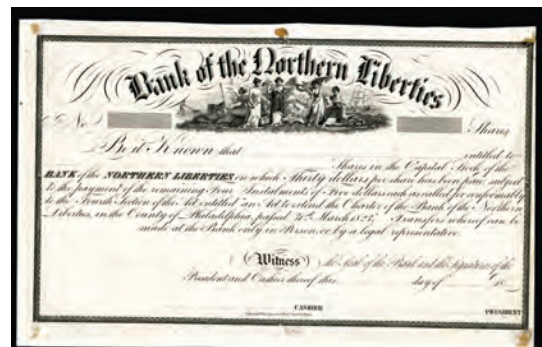 Bank of the Northern Liberties
No. Shares
Be it Known that entitled to
Shares in the Capital Stock of the
BANK of the NORTHERN LIBERTIES on which Thirty dollars per share has been paid, subject
to the payment of the remaining Four Instalments of Five dollars each as called for conformably
to the Fourth Section of the Act entitled "an Act to extend the Charter of the Bank of the Northern
Liberties, in the County of Philadelphia, passed March Transfers whereof can be
made at the Bank only in Person, or by a legal representative.
Witness the Seal of the Bank and the Signatures of the
President and Cashier thereof this day of 18
CASHIER PRESIDENT